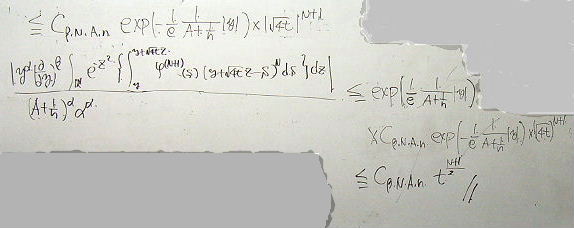 ≦ C_{β.N.A.n} exp(-\frac{1}{e} \frac{1}{A+\frac{1}{n}} |y|) × |√4t|^{N+1}
\frac{|y^α (\frac{∂}{∂y})^β ∫_{ℝ} e^{-z^2} {∫_y^{y+√4t z} φ^{(N+1)}(s) (y+√4t z - s)^N ds} dz|}{(A+\frac{1}{n})^α α^α} ≦ exp(\frac{1}{e} \frac{1}{A+\frac{1}{n}} |y|)
× C_{β.N.A.n} exp(-\frac{1}{e} \frac{1}{A+\frac{1}{n}} |y|) × |√4t|^{N+1}
≦ C_{β.N.A.n} t^{\frac{N+1}{2}} //